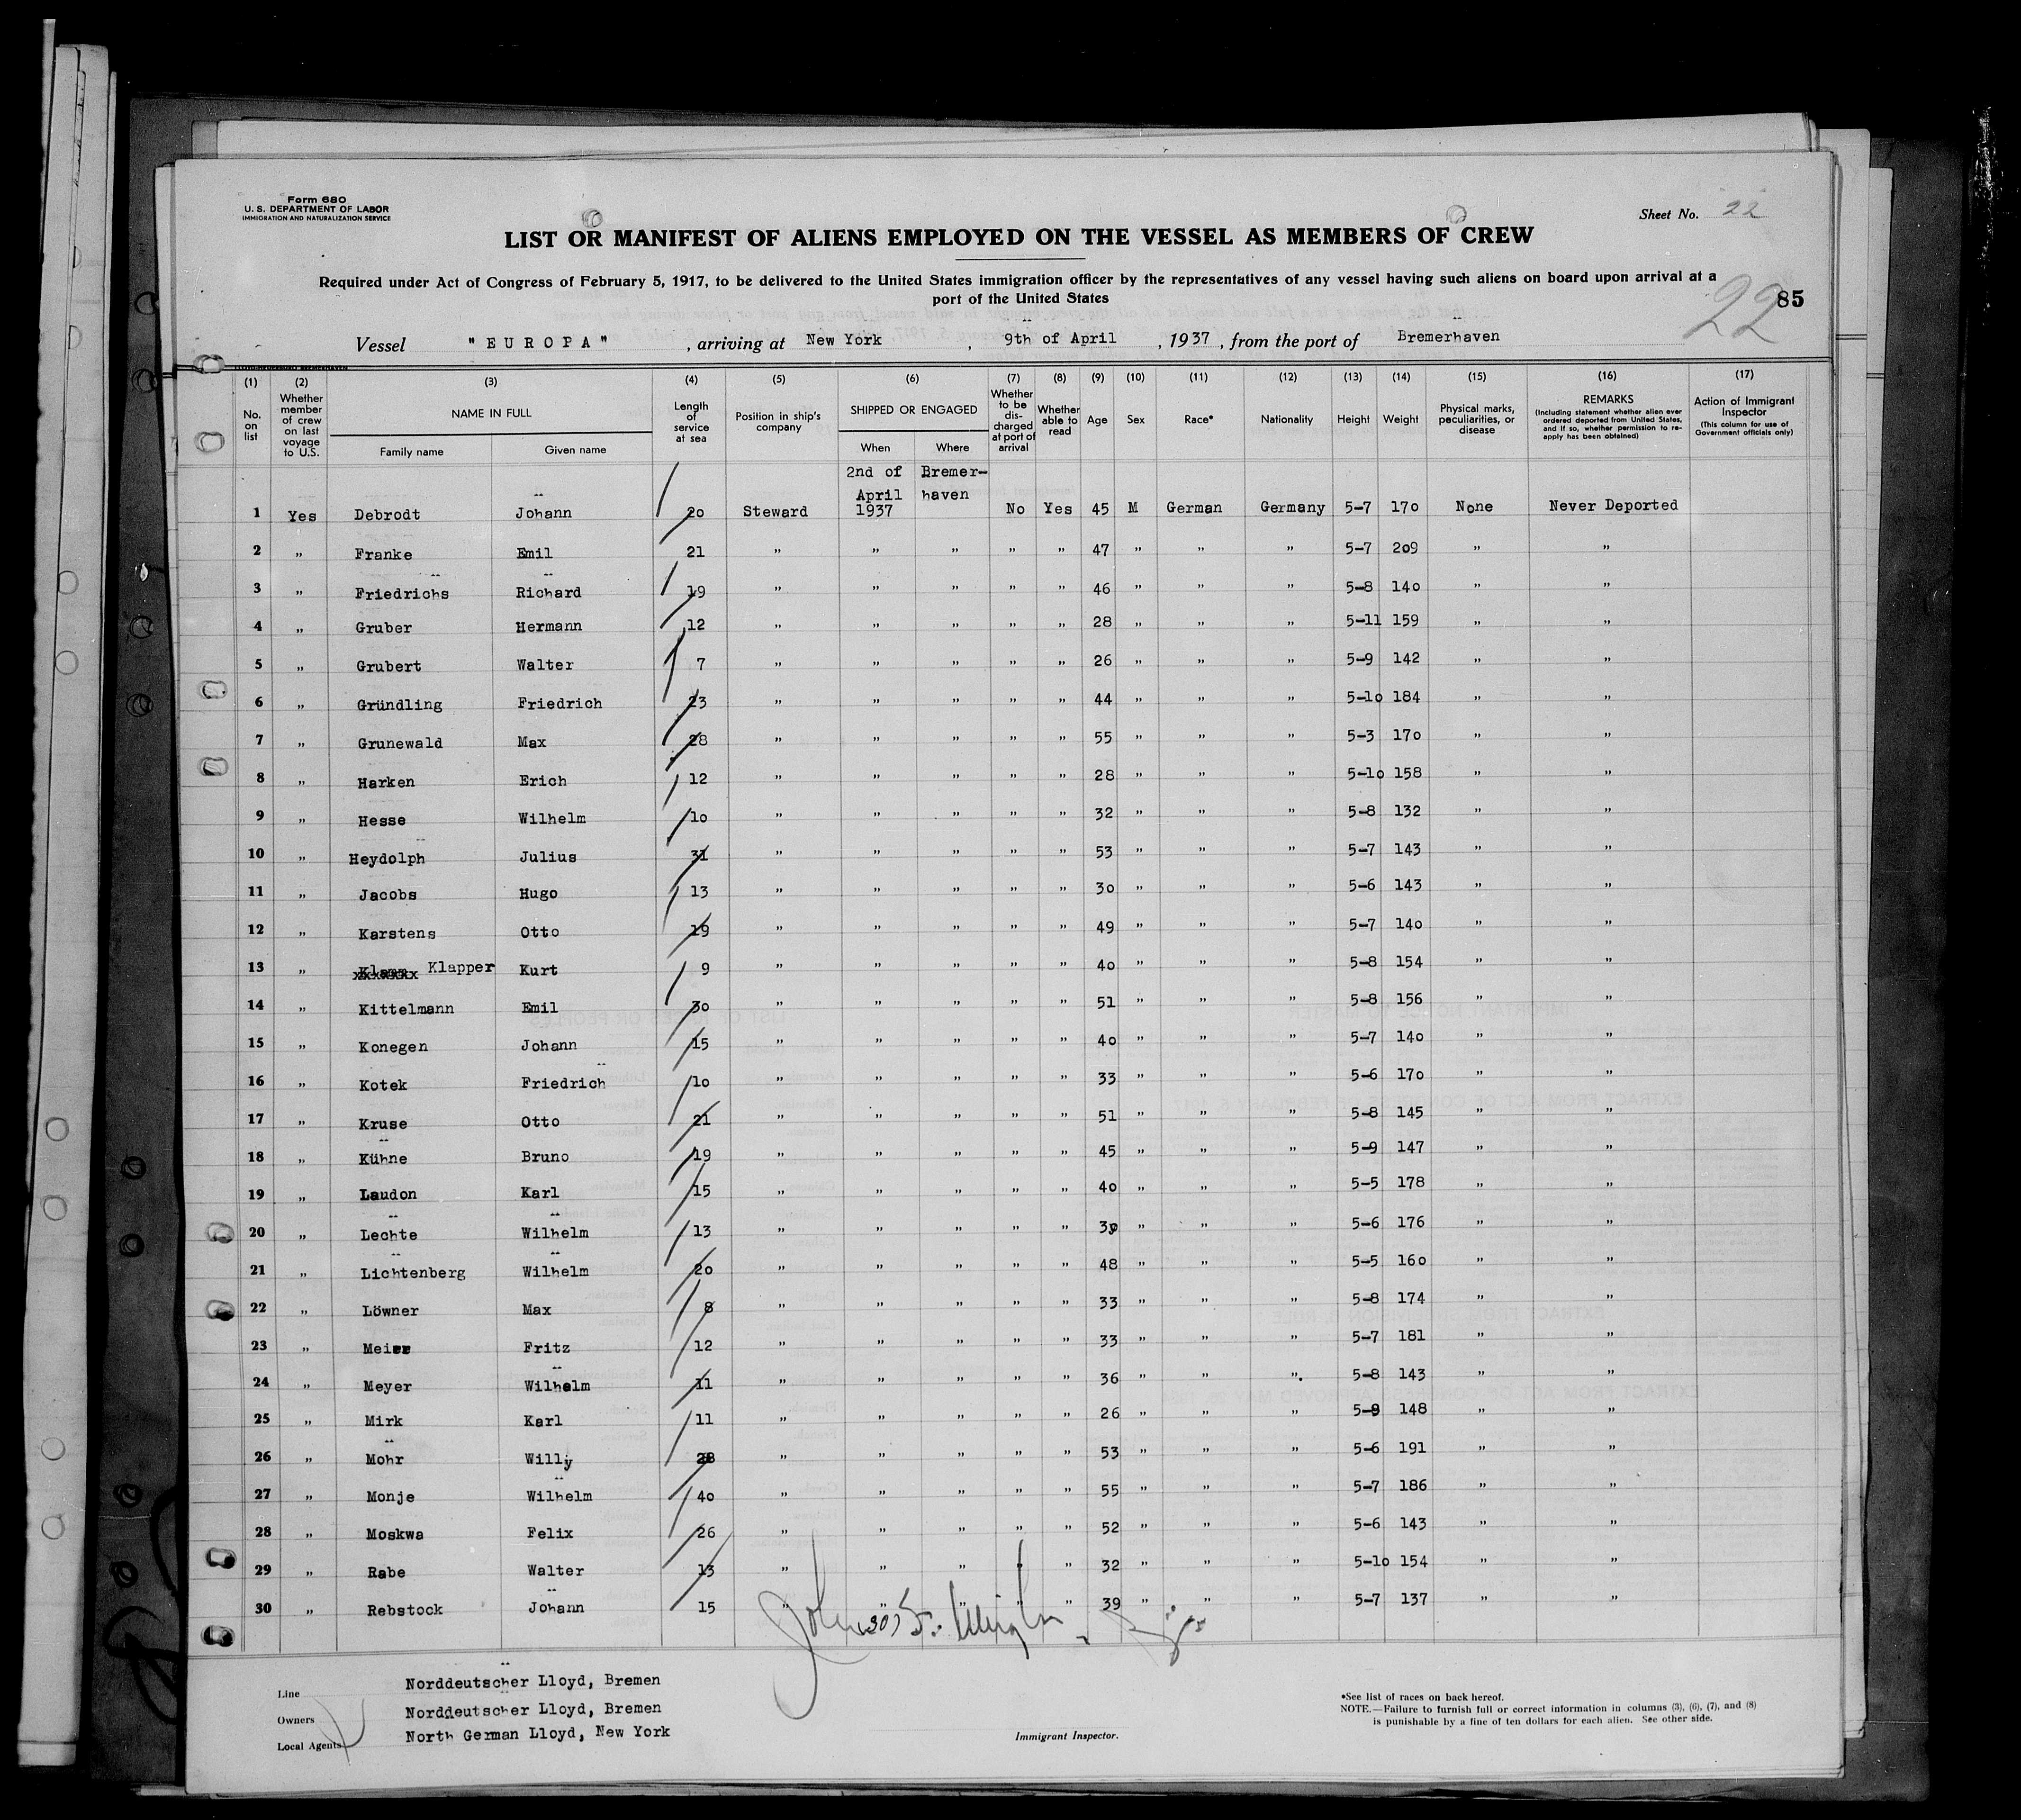 Form 680
U. S. DEPARTMENT OF LABOR
IMMIGRATION AND NATURALIZATION SERVICE
Sheet No. 22
LIST OR MANIFEST OF ALIENS EMPLOYED ON THE VESSEL AS MEMBERS OF CREW
Required under Act of Congress of February 5, 1917, to be delivered to the United States immigration officer by the representatives of any vessel having such aliens on board upon arrival at a
port of the United States
22 85
Vessel " E U R O P A " , arriving at New York , 9th of April , 1937 , from the port of Bremerhaven
(1) (2) (3) (4) (5) (6) (7) (8) (9) (10) (11) (12) (13) (14) (15) (16) (17)
No. on list
Whether member of crew on last voyage to U.S.
NAME IN FULL
Family name Given name
Length of service at sea
Position in ship's company
SHIPPED OR ENGAGED
When Where
Whether to be discharged at port of arrival
Whether able to read
Age
Sex
Race*
Nationality
Height
Weight
Physical marks, peculiarities, or disease
REMARKS
(Including statement whether alien ever ordered deported from United States, and if so, whether permission to re-apply has been obtained)
Action of Immigrant Inspector
(This column for use of Government officials only)
2nd of Bremer-
April haven
1 Yes Debrodt Johann 20 Steward 1937 No Yes 45 M German Germany 5-7 170 None Never Deported
2 " Franke Emil 21 " " " " " 47 " " " 5-7 209 " "
3 " Friedrichs Richard 19 " " " " " 46 " " " 5-8 140 " "
4 " Gruber Hermann 12 " " " " " 28 " " " 5-11 159 " "
5 " Grubert Walter 7 " " " " " 26 " " " 5-9 142 " "
6 " Gründling Friedrich 23 " " " " " 44 " " " 5-10 184 " "
7 " Grunewald Max 28 " " " " " 55 " " " 5-3 170 " "
8 " Harken Erich 12 " " " " " 28 " " " 5-10 158 " "
9 " Hesse Wilhelm 10 " " " " " 32 " " " 5-8 132 " "
10 " Heydolph Julius 31 " " " " " 53 " " " 5-7 143 " "
11 " Jacobs Hugo 13 " " " " " 30 " " " 5-6 143 " "
12 " Karstens Otto 19 " " " " " 49 " " " 5-7 140 " "
13 " Klapper Kurt 9 " " " " " 40 " " " 5-8 154 " "
14 " Kittelmann Emil 30 " " " " " 51 " " " 5-8 156 " "
15 " Konegen Johann 15 " " " " " 40 " " " 5-7 140 " "
16 " Kotek Friedrich 10 " " " " " 33 " " " 5-6 170 " "
17 " Kruse Otto 21 " " " " " 51 " " " 5-8 145 " "
18 " Kühne Bruno 19 " " " " " 45 " " " 5-9 147 " "
19 " Laudon Karl 15 " " " " " 40 " " " 5-5 178 " "
20 " Lechte Wilhelm 13 " " " " " " " " 5-6 176 " "
21 " Lichtenberg Wilhelm 20 " " " " " 48 " " " 5-5 160 " "
22 " Löwner Max 8 " " " " " 33 " " " 5-8 174 " "
23 " Meier Fritz 12 " " " " " 33 " " " 5-7 181 " "
24 " Meyer Wilhelm 11 " " " " " 36 " " " 5-8 143 " "
25 " Mirk Karl 11 " " " " " 26 " " " 5-9 148 " "
26 " Mohr Willy 28 " " " " " 53 " " " 5-6 191 " "
27 " Monje Wilhelm 40 " " " " " 55 " " " 5-7 186 " "
28 " Moskwa Felix 26 " " " " " 52 " " " 5-6 143 " "
29 " Rabe Walter 13 " " " " 32 " " " 5-10 154 " "
30 " Rebstock Johann 15 " " " " " 39 " " " 5-7 137 " "
Line Norddeutscher Lloyd, Bremen
Owners Norddeutscher Lloyd, Bremen
Local Agents North German Lloyd, New York
Immigrant Inspector.
*See list of races on back hereof.
NOTE.—Failure to furnish full or correct information in columns (3), (6), (7), and (8)
is punishable by a fine of ten dollars for each alien. See other side.